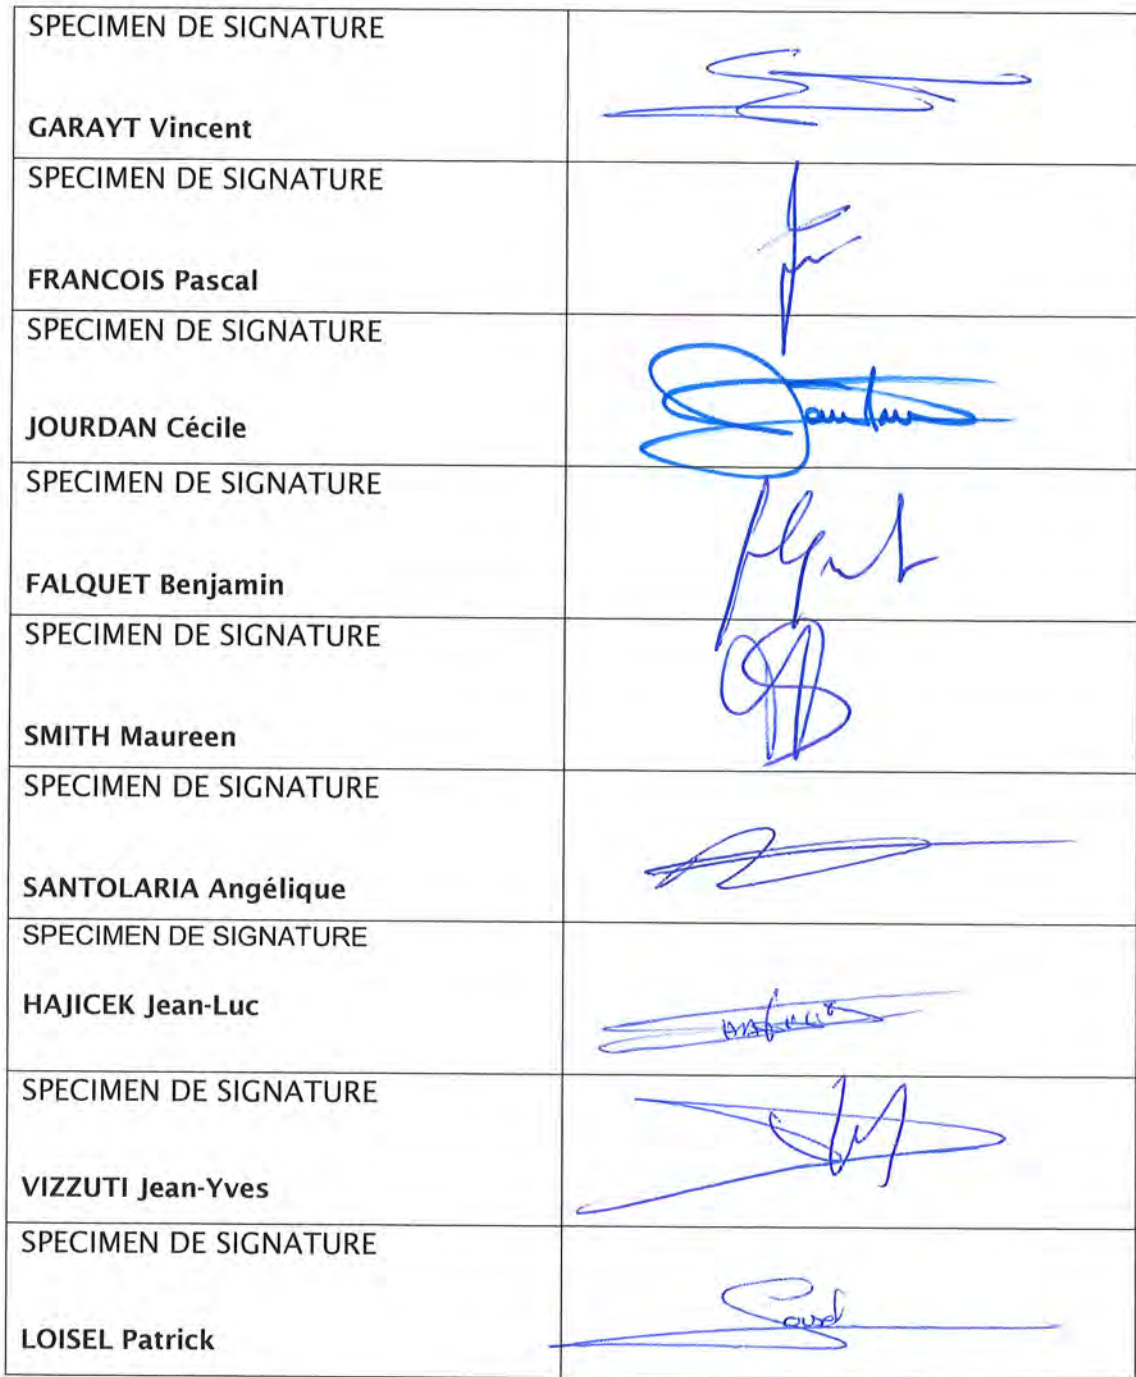 SPECIMEN DE SIGNATURE
GARAYT Vincent
SPECIMEN DE SIGNATURE
FRANCOIS Pascal
SPECIMEN DE SIGNATURE
JOURDAN Cécile
SPECIMEN DE SIGNATURE
FALQUET Benjamin
SPECIMEN DE SIGNATURE
SMITH Maureen
SPECIMEN DE SIGNATURE
SANTOLARIA Angélique
SPECIMEN DE SIGNATURE
HAJICEK Jean-Luc
SPECIMEN DE SIGNATURE
VIZZUTI Jean-Yves
SPECIMEN DE SIGNATURE
LOISEL Patrick